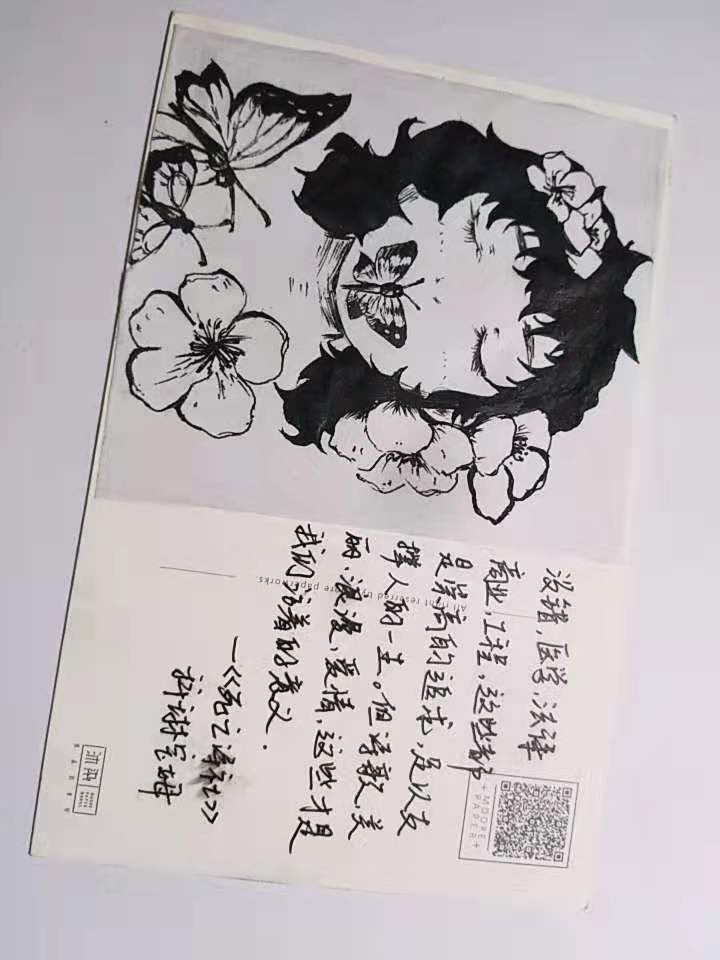 没错，医学，法律
商业，工程，这些都
是崇高的追求，足以支
撑人的一生。但诗歌、美
丽、浪漫、爱情，这些才是
我们活着的意义.
—《死亡诗社》
All right reserved by paperworks.
+MOORE
PAPER+